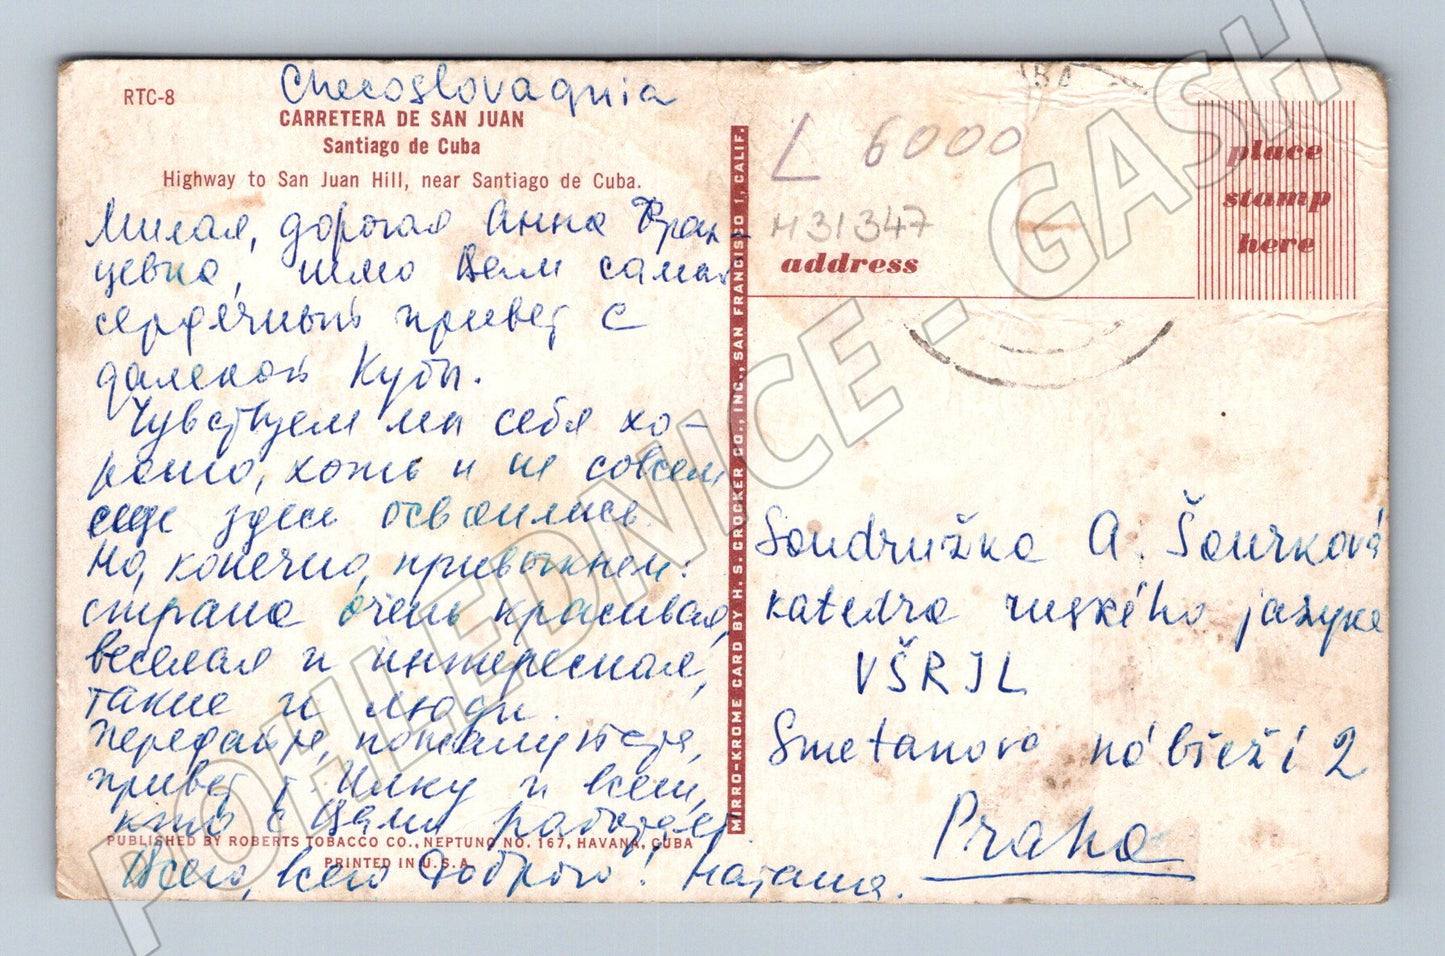 Checoslovaquia
RTC-8
CARRETERA DE SAN JUAN
Santiago de Cuba
Highway to San Juan Hill, near Santiago de Cuba.
Милая, дорогая Анна Фран-
цевна, шлю Вам самый
сердечный привет с
далекой Кубы.
Чувствуем мы себя хо-
рошо, хоть и не совсем
еще здесь освоились.
Но, конечно, привыкнем:
страна очень красивая,
веселая и интересная,
такие и люди.
Передайте, пожалуйста,
привет т. Илку и всем,
кто с Вами работает
PUBLISHED BY ROBERTS TOBACCO CO., NEPTUNO NO. 167, HAVANA, CUBA
PRINTED IN U.S.A.
Всего, всего доброго! Наташа.
MIRRO-KROME CARD BY H. S. CROCKER CO., INC., SAN FRANCISCO 1, CALIF.
L 6000
H31347
address
BA
place
stamp
here
Soudružka A. Šourková
katedra ruského jazyka
VŠRJL
Smetanovo nábřeží 2
Praha
POHLEDNICE - GASH